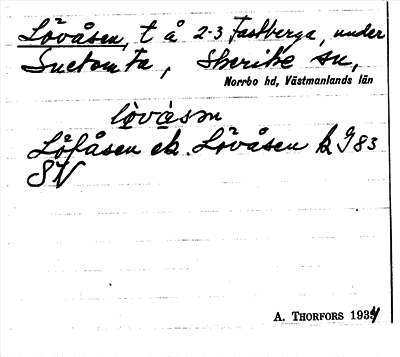 Lövåsen, t å 2-3 Fastberga, under
Suctomta, Skerike sn,
Norrbo hd, Västmanlands län
lövåsən
Löfåsen ek. Lövåsen k J 83
SV
A. THORFORS 1934